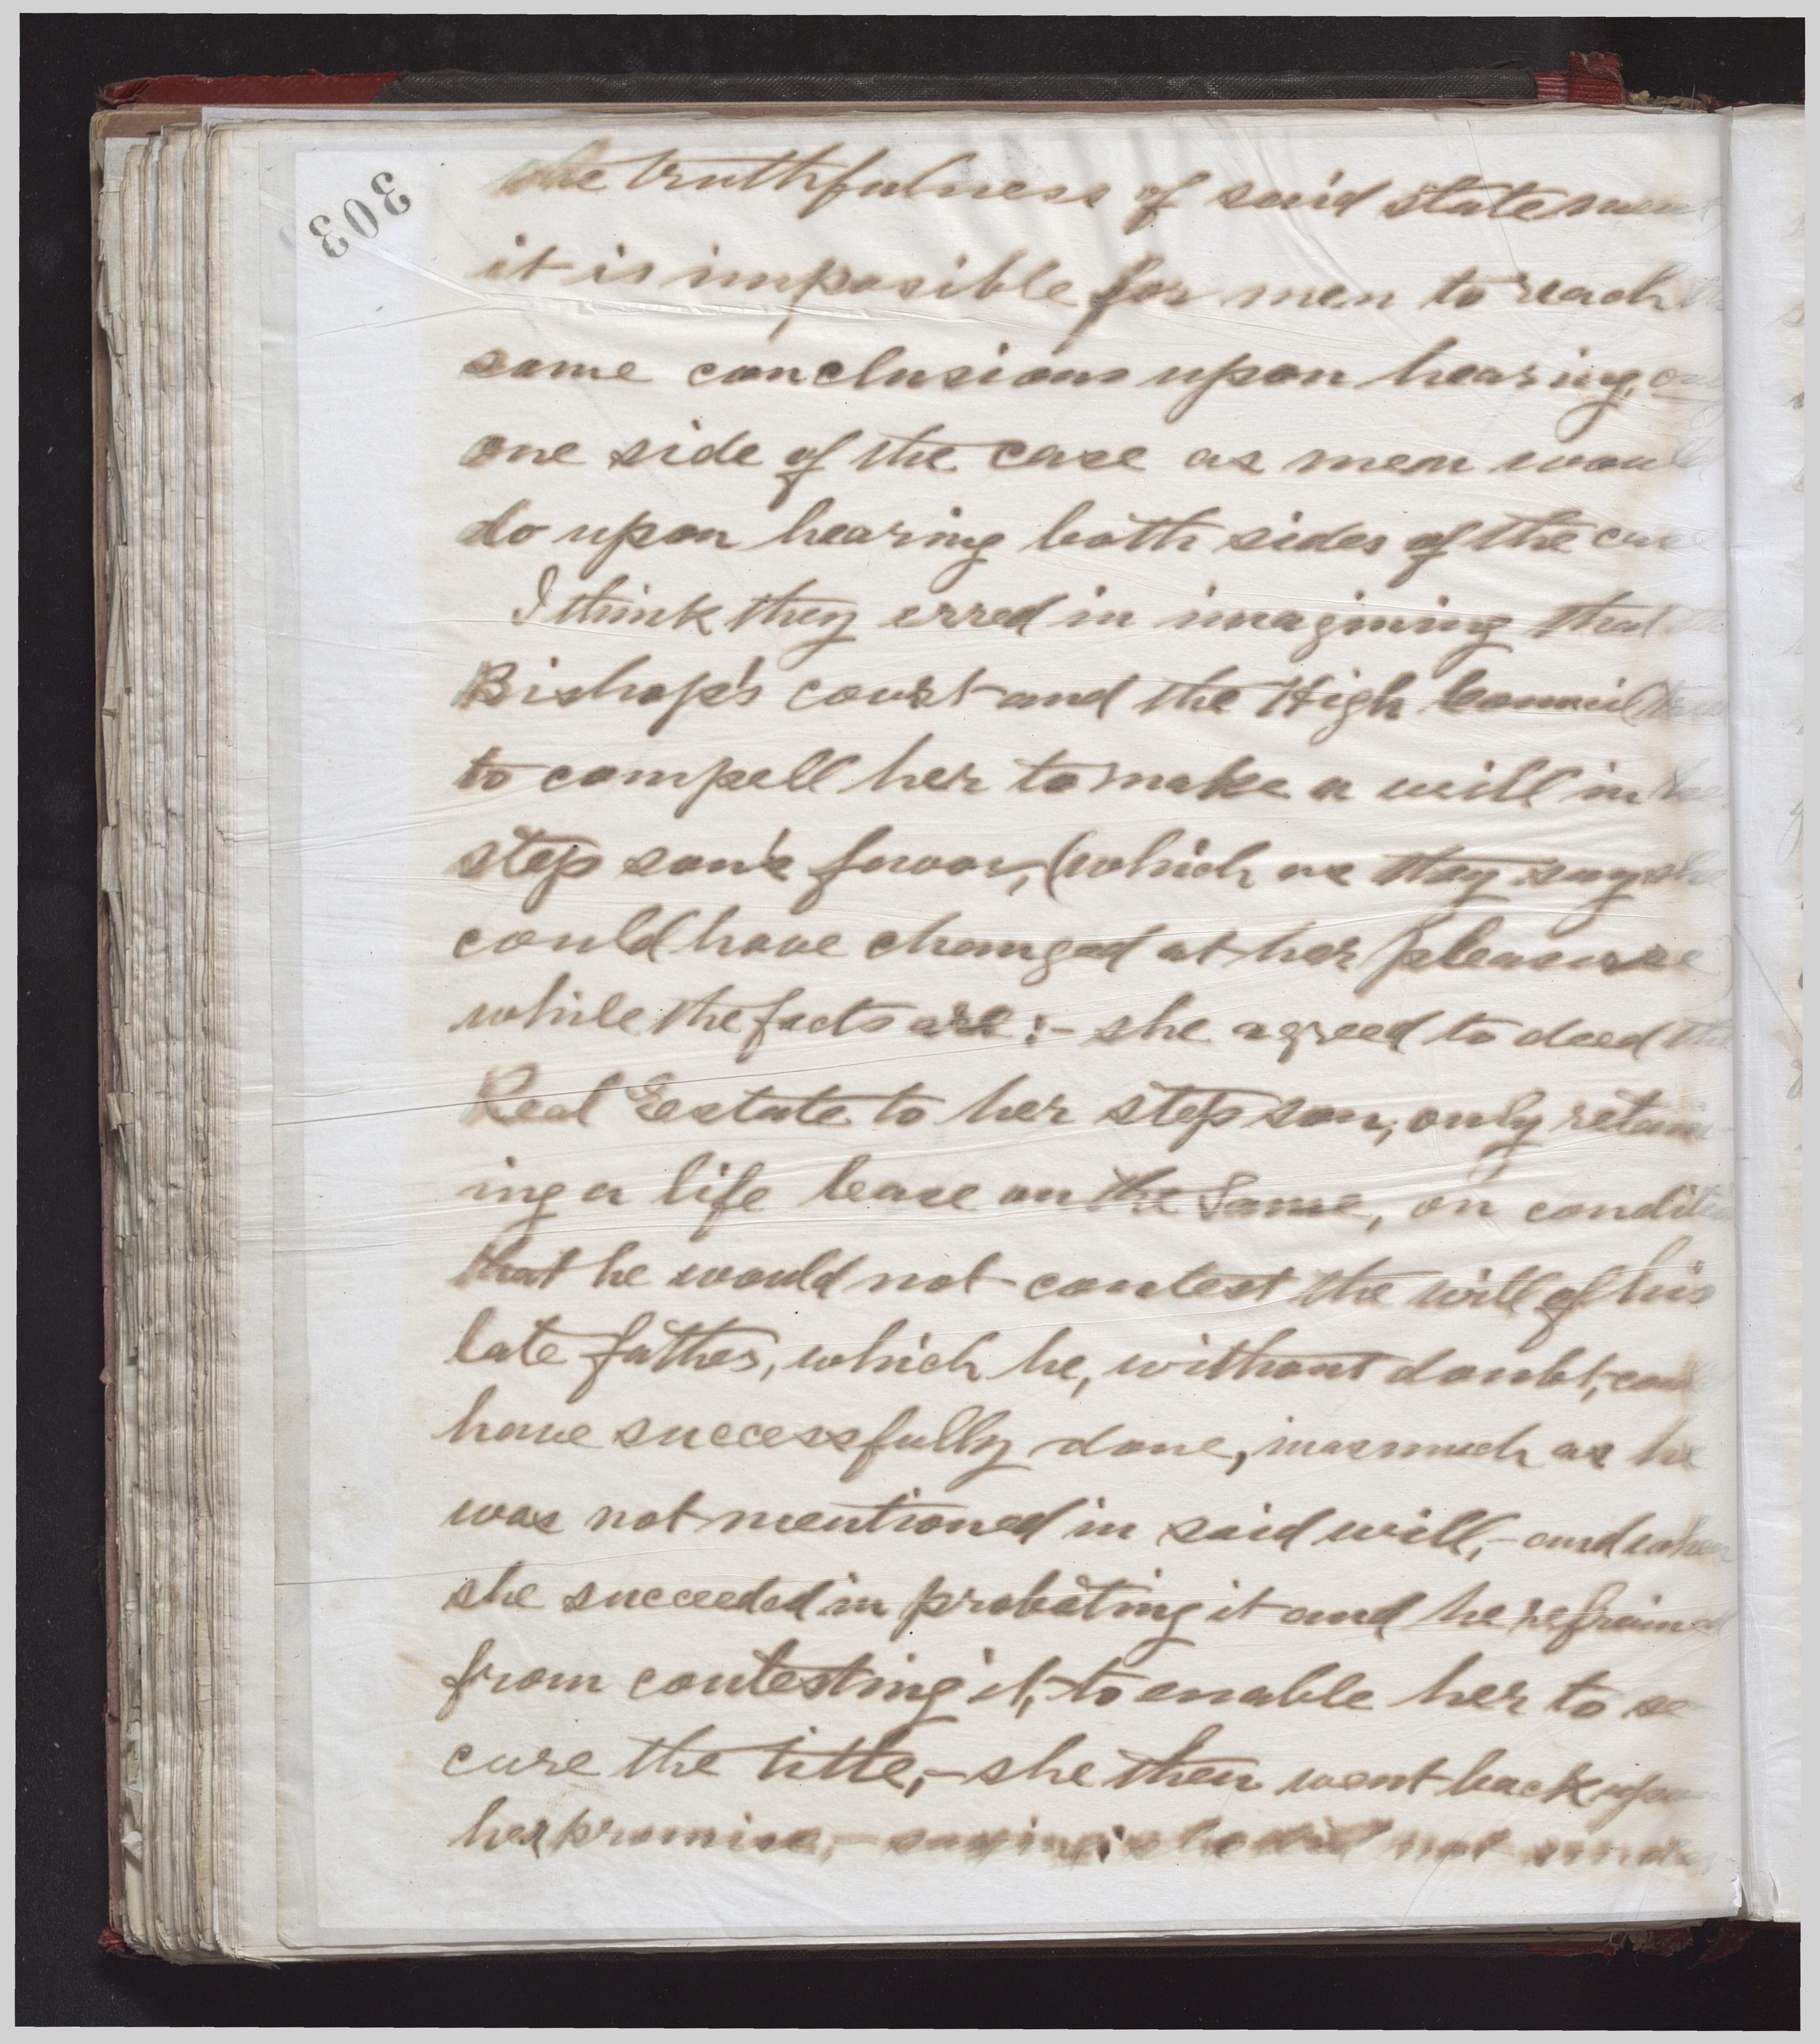 303
the truthfulness of said statement
it is imposible for men to reach the
same conclusions upon hearing only
one side of the case as men would
do upon hearing both sides of the case
I think they erred in imagining that the
Bishop's court and the High Council
to compell her to make a will in her
step son's favor, (which as they say she
could have changed at her pleasure)
while the facts are:- she agreed to deed the
Real Eestate to her step son, only retain-
ing a life lease on the same, on condition
that he would not contest the will of his
late father, which he, without doubt, could
have successfully done, inasmuch as he
was not mentioned in said will,- and when
she succeeded in probating it and he refrained
from contesting it, to enable her to se-
cure the title,- she then went back upon
her promise,- saying she did not